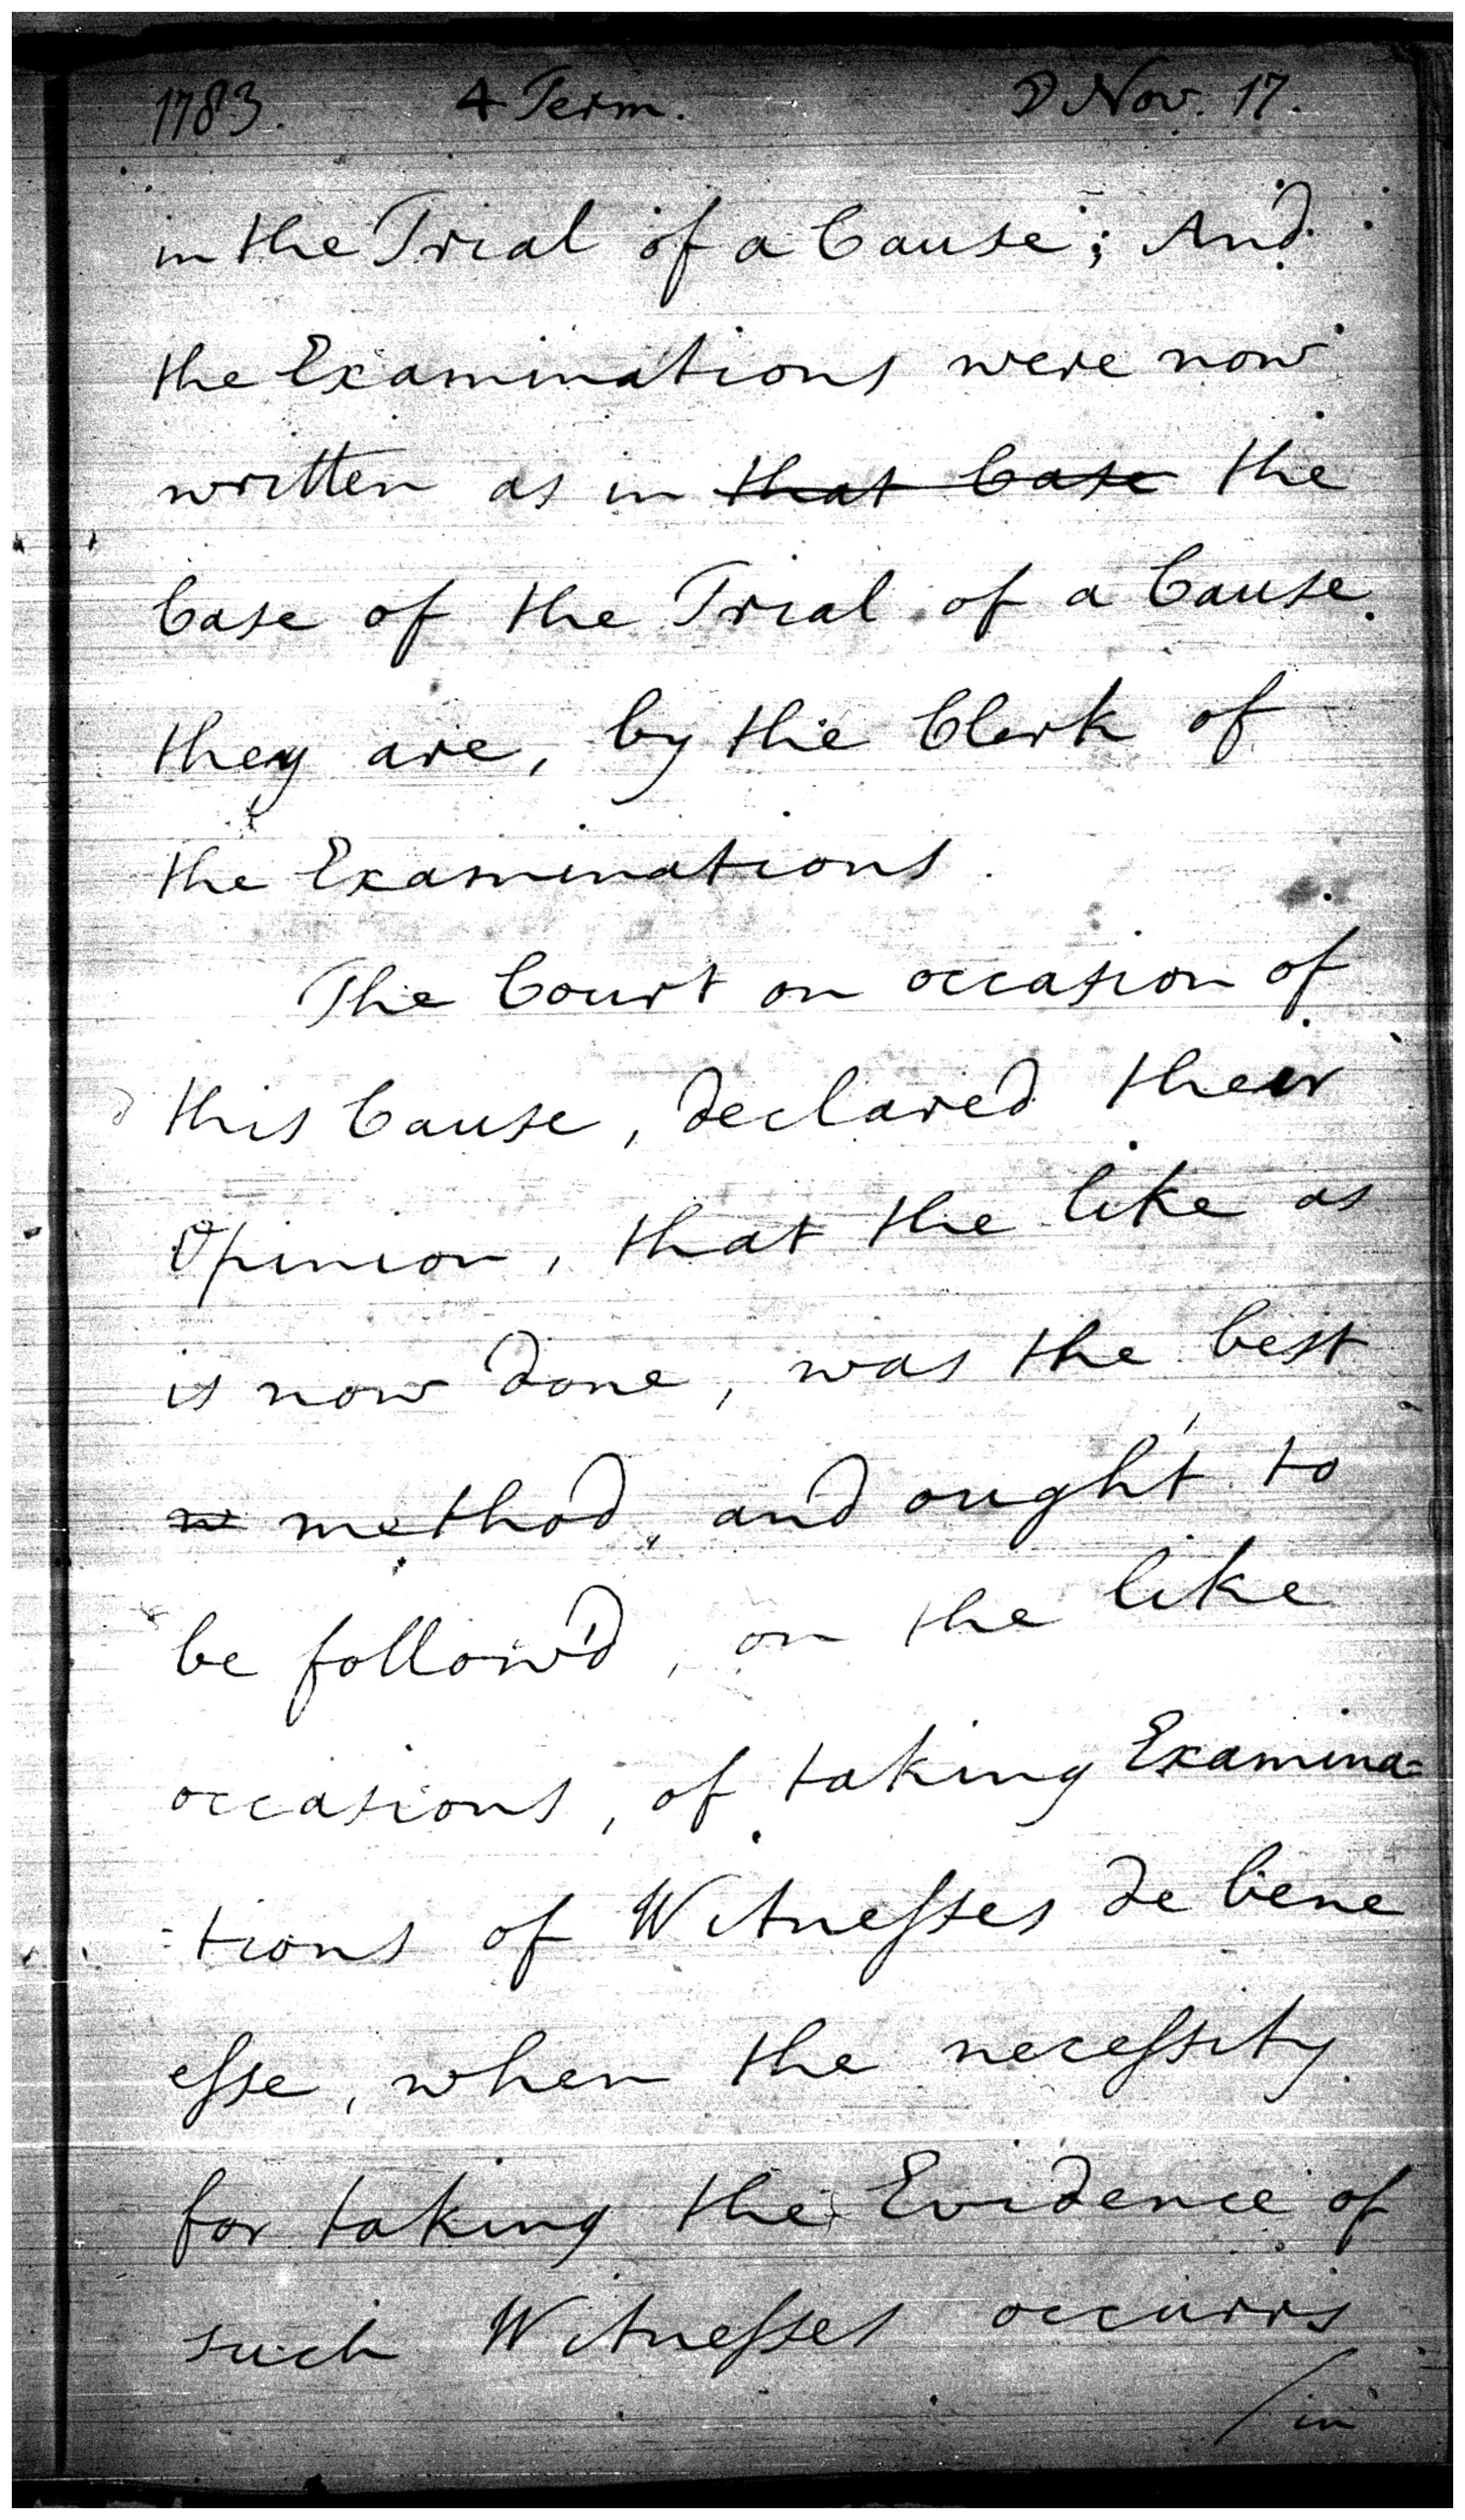 1783. 4 Term. ☽ Nov. 17.
in the Trial of a Cause; And
the Examinations were now
written as in ~~that Case~~ the
Case of the Trial of a Cause
they are, by the Clerk of
the Examinations.
The Court on occasion of
this Cause, declared their
Opinion, that the like as
is now done, was the best
~~m~~ method, and ought to
be follow'd, on the like
occasions, of taking Examina=
=tions of Witneſses de bene
eſse, when the neceſsity
for taking the Evidence of
such Witneſses occurrs
/in